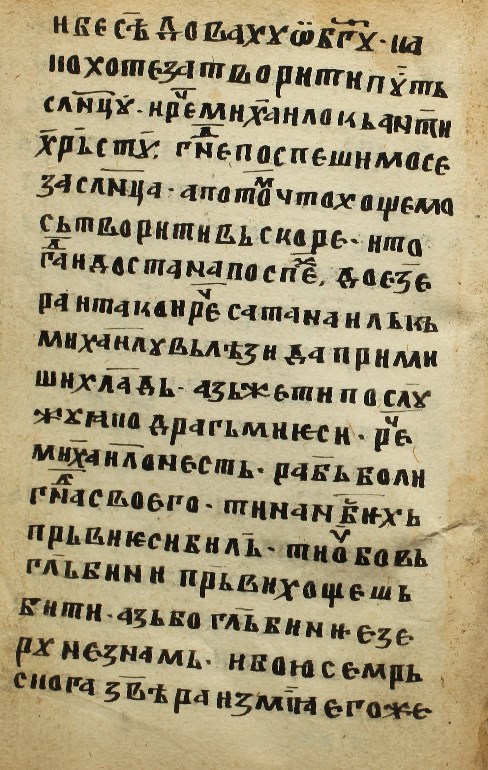 и бесѣдоваху ѿ б҃гу · на
по хоте затворити пꙋть
сл҃нцꙋ · и реⷱ҇ михаⷯилокь анти
хрьстꙋ · гⷭ҇не поспешимо се
за сл҃нца · а потоⷨ что хощемо
сьтворити вь скоре · и то
гаⷣи доста на поспеⷯ, до езе
ра и тако и реⷱ҇ сатанаиль кь
михаилꙋ вьлѣзи да прими
ши хладь · азь же ти послꙋ
жꙋ ꙗко драгь ми ѥси · реⷱ҇
михаило несть · рабь боли
гⷭ҇на своего · ти на н҃бѥхь
прьви ѥси биль · ти оⷱ бо вь
гльбини прьви хощешь
бити · азь бо гльбини ѥзе
рх не знамь · и бою се мрь
снога звѣра и змиꙗ егоже